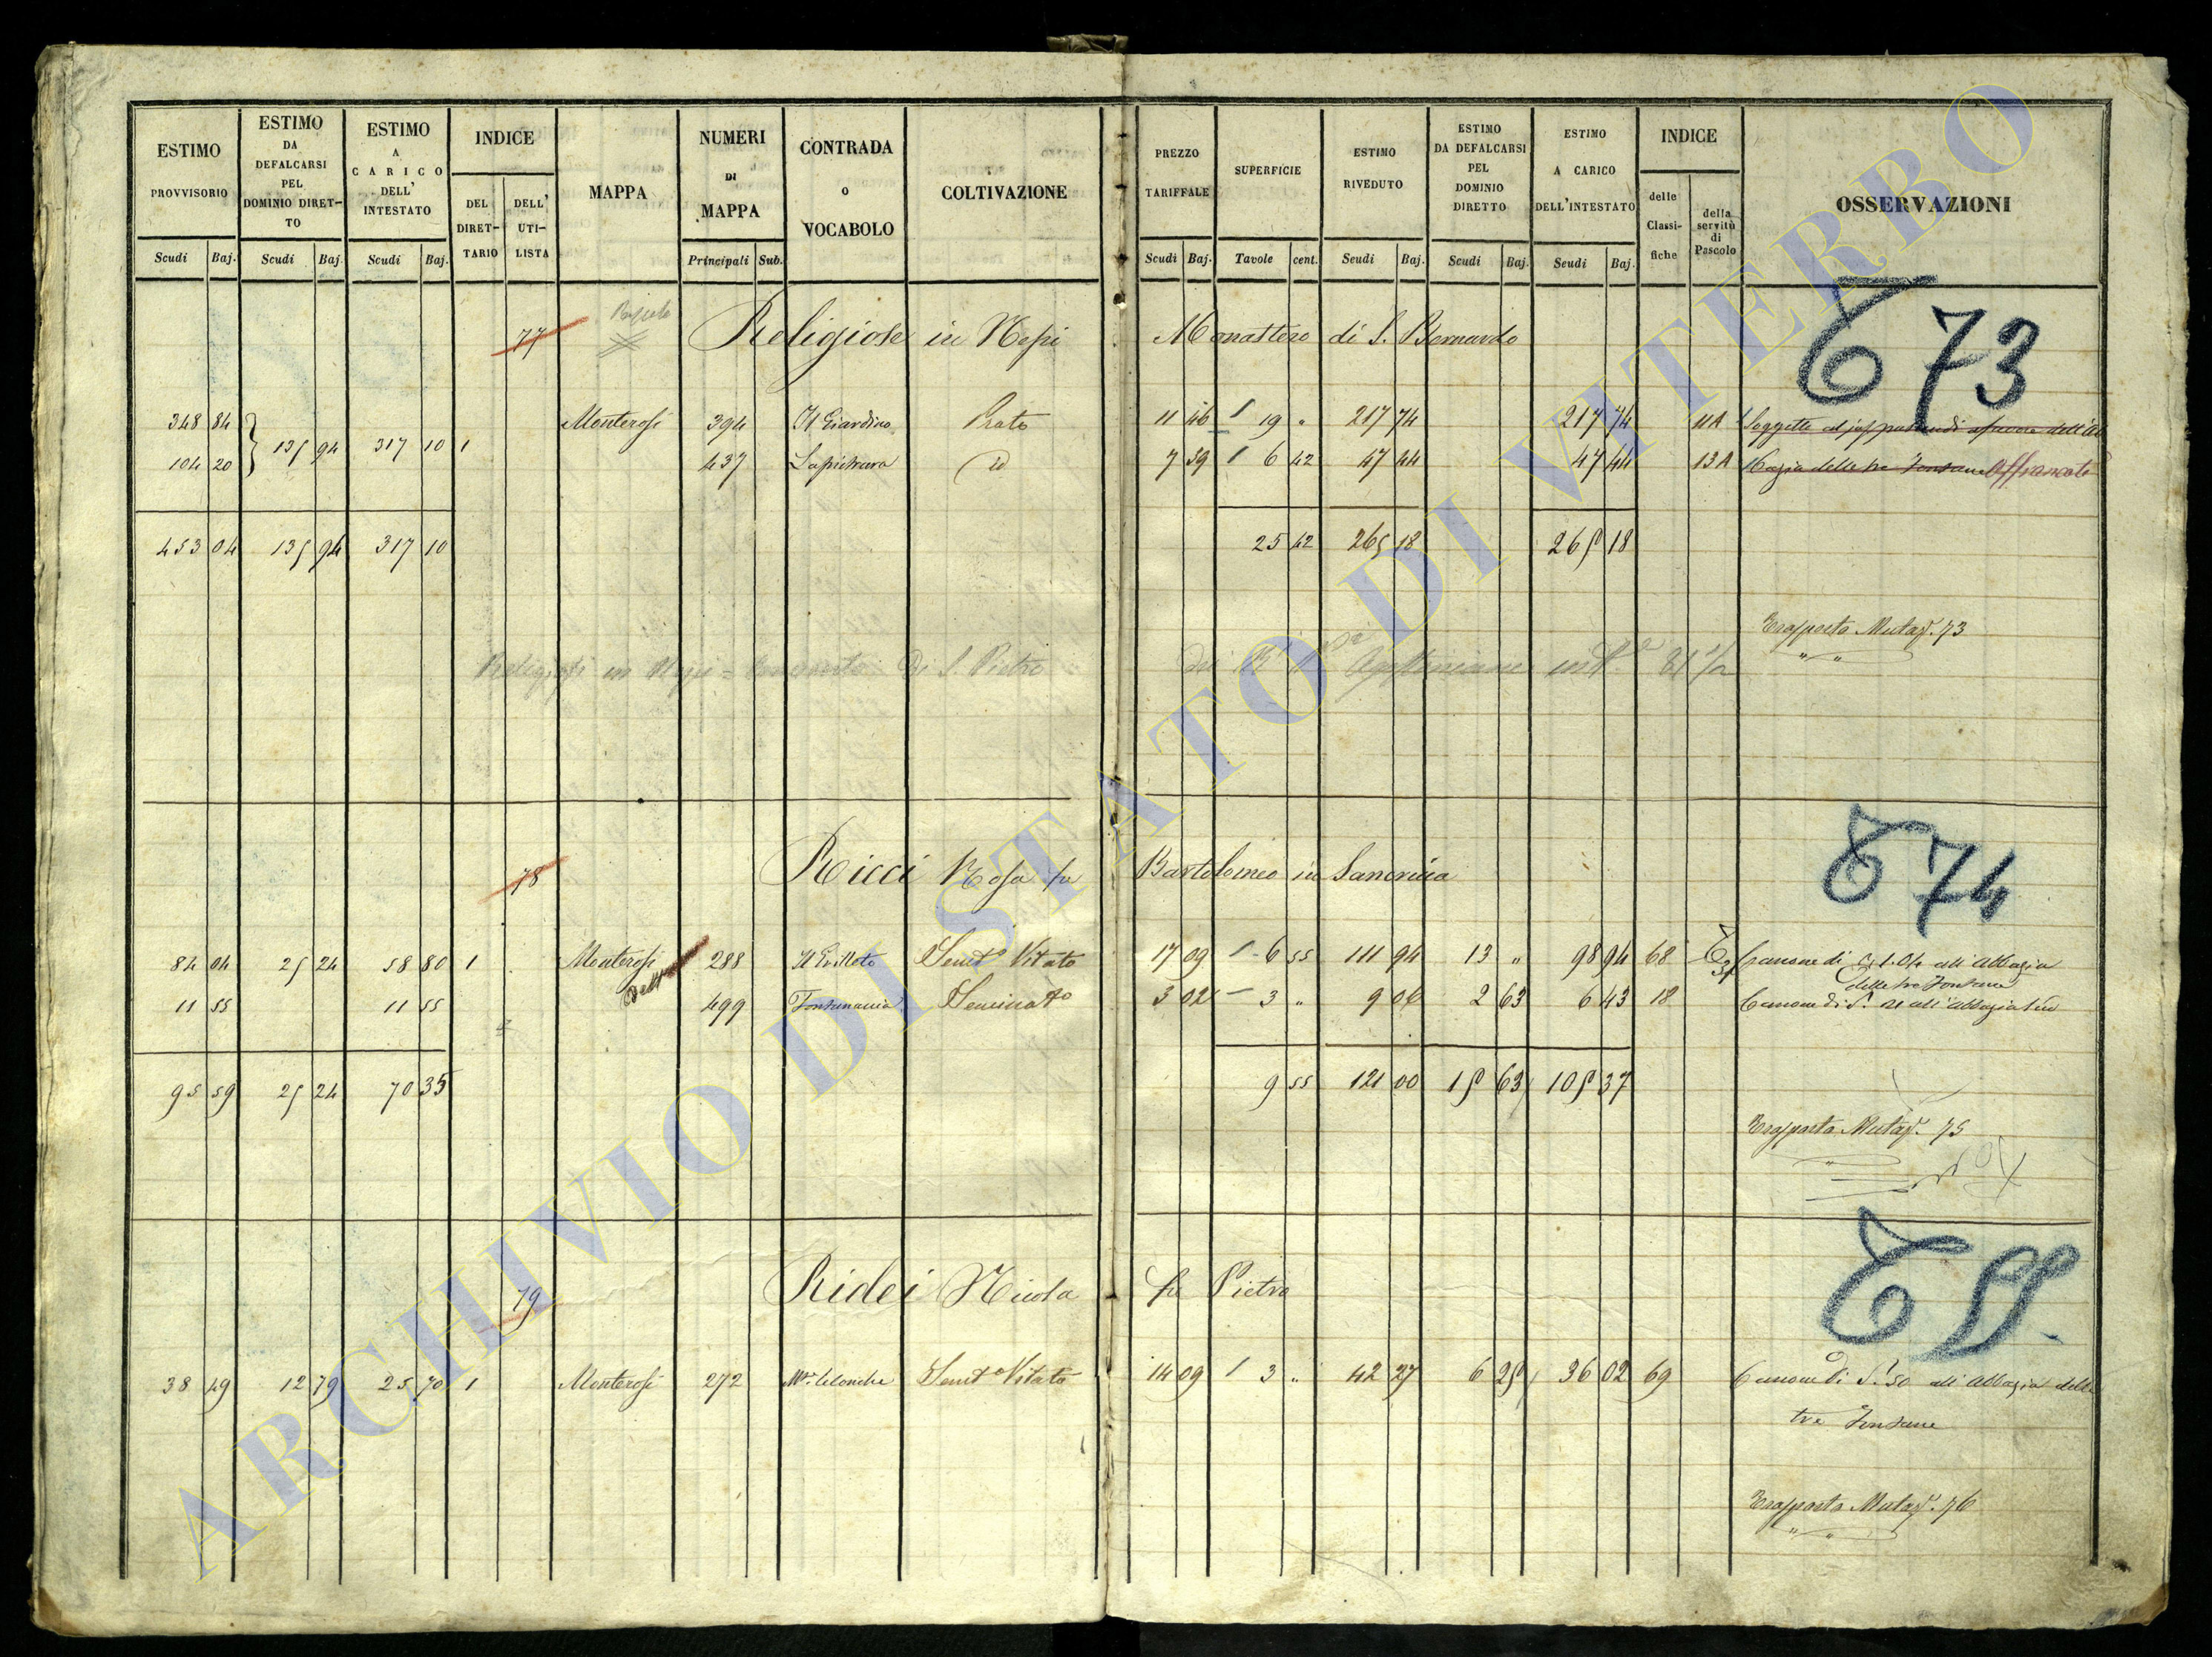 ESTIMO PROVVISORIO Scudi Baj.
ESTIMO DA DEFALCARSI PEL DOMINIO DIRET-TO Scudi Baj.
ESTIMO A CARICO DELL' INTESTATO Scudi Baj.
INDICE DEL DIRET-TARIO DELL' UTI-LISTA
MAPPA
NUMERI DI MAPPA Principali Sub.
CONTRADA o VOCABOLO
COLTIVAZIONE
PREZZO TARIFFALE Scudi Baj.
SUPERFICIE Tavole cent.
ESTIMO RIVEDUTO Scudi Baj.
ESTIMO DA DEFALCARSI PEL DOMINIO DIRETTO Scudi Baj.
ESTIMO A CARICO DELL'INTESTATO Scudi Baj.
INDICE delle Classi-fiche della servitù di Pascolo
OSSERVAZIONI
77 Religiose in Nepi Monastero di S. Bernardo 73
348 84 Monterosi 394 Il Giardino Prato 11 46 1 19 " 217 74 217 74 11A Soggetto al jus pascendi a favore dell'Ab
135 94 317 10 1
104 20 437 Lapichiara id 7 39 1 6 42 47 44 47 44 13A bazia delle tre Fontane Affrancato
453 04 135 94 317 10 25 42 265 18 265 18
Trasporto Mutaz. 73
" "
Religiosi in Nepi = Convento Di S. Pietro
78 Ricci Rosa fu Bartolomeo in Sancricia 74
84 04 25 24 58 80 1 Monterosi 288 Il Grilleto Semto Vitato 17 09 1 6 55 111 94 13 " 98 94 68 Canone di S 1.04 all'Abbazia
delle tre Fontane
11 55 11 55 detto 499 Fontanaccia Seminato 3 02 - 3 " 9 06 2 63 6 43 18 Canone di S. 21 all'abbazia sud
95 59 25 24 70 35 9 55 121 00 15 63 105 37
Trasporto Mutaz. 75
"
79 Ridei Nicola fu Pietro
38 49 12 79 25 70 1 Monterosi 272 Semto Vitato 14 09 1 3 " 42 27 6 25 36 02 69 Canone di S. 50 all'Abbazia delle
tre Fontane
Trasporto Mutaz. 76
" "
ARCHIVIO DI STATO DI VITERBO